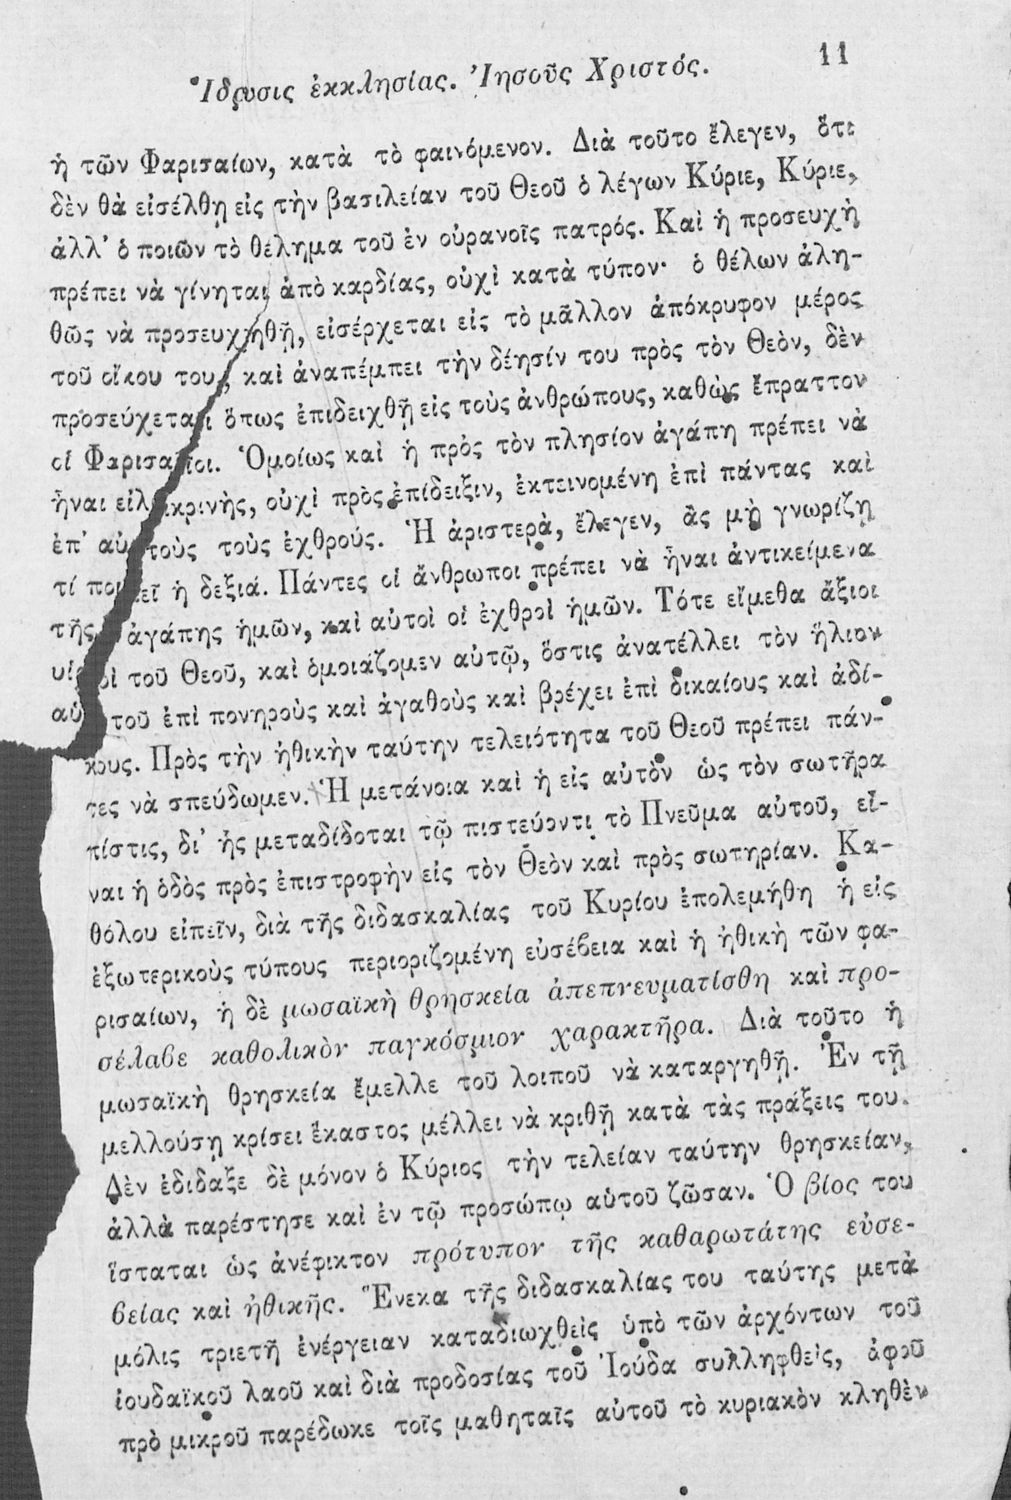 Ἵδρυσις ἐκκλησίας. Ἰησοῦς Χριστός. 11
ἡ τῶν Φαρισαίων, κατὰ τὸ φαινόμενον. Διὰ τοῦτο ἔλεγεν, ὅτι
δὲν θὰ εἰσέλθῃ εἰς τὴν βασιλείαν τοῦ Θεοῦ ὁ λέγων Κύριε, Κύριε,
ἀλλ' ὁ ποιῶν τὸ θέλημα τοῦ ἐν οὐρανοῖς πατρός. Καὶ ἡ προσευχὴ
πρέπει νὰ γίνηται ἀπὸ καρδίας, οὐχὶ κατὰ τύπον· ὁ θέλων ἀλη-
θῶς νὰ προσευχηθῇ, εἰσέρχεται εἰς τὸ μᾶλλον ἀπόκρυφον μέρος
τοῦ οἴκου του, καὶ ἀναπέμπει τὴν δέησίν του πρὸς τὸν Θεὸν, δὲν
προσεύχεται ὅπως ἐπιδειχθῇ εἰς τοὺς ἀνθρώπους, καθὼς ἔπραττον
οἱ Φαρισαῖοι. Ὁμοίως καὶ ἡ πρὸς τὸν πλησίον ἀγάπη πρέπει νὰ
ἦναι εἰλικρινὴς, οὐχὶ πρὸς ἐπίδειξιν, ἐκτεινομένη ἐπὶ πάντας καὶ
ἐπ' αὐτοὺς τοὺς ἐχθρούς. Ἡ ἀριστερὰ, ἔλεγεν, ἂς μὴ γνωρίζῃ
τί ποιεῖ ἡ δεξιά. Πάντες οἱ ἄνθρωποι πρέπει νὰ ἦναι ἀντικείμενα
τῆς ἀγάπης ἡμῶν, καὶ αὐτοὶ οἱ ἐχθροὶ ἡμῶν. Τότε εἴμεθα ἄξιοι
υἱοὶ τοῦ Θεοῦ, καὶ ὁμοιάζομεν αὐτῷ, ὅστις ἀνατέλλει τὸν ἥλιον
αὑτοῦ ἐπὶ πονηροὺς καὶ ἀγαθοὺς καὶ βρέχει ἐπὶ δικαίους καὶ ἀδί-
κους. Πρὸς τὴν ἠθικὴν ταύτην τελειότητα τοῦ Θεοῦ πρέπει πάν-
τες νὰ σπεύδωμεν. Ἡ μετάνοια καὶ ἡ εἰς αὐτὸν ὡς τὸν σωτῆρα
πίστις, δι' ἧς μεταδίδοται τῷ πιστεύοντι τὸ Πνεῦμα αὐτοῦ, εἶ-
ναι ἡ ὁδὸς πρὸς ἐπιστροφὴν εἰς τὸν Θεὸν καὶ πρὸς σωτηρίαν. Κα-
θόλου εἰπεῖν, διὰ τῆς διδασκαλίας τοῦ Κυρίου ἐπολεμήθη ἡ εἰς
ἐξωτερικοὺς τύπους περιοριζομένη εὐσέβεια καὶ ἡ ἠθικὴ τῶν φα-
ρισαίων, ἡ δὲ μωσαϊκὴ θρησκεία ἀπεπνευματίσθη καὶ προ-
σέλαβε καθολικὸν παγκόσμιον χαρακτῆρα. Διὰ τοῦτο ἡ
μωσαϊκὴ θρησκεία ἔμελλε τοῦ λοιποῦ νὰ καταργηθῇ. Ἐν τῇ
μελλούσῃ κρίσει ἕκαστος μέλλει νὰ κριθῇ κατὰ τὰς πράξεις του.
Δὲν ἐδίδαξε δὲ μόνον ὁ Κύριος τὴν τελείαν ταύτην θρησκείαν,
ἀλλὰ παρέστησε καὶ ἐν τῷ προσώπῳ αὑτοῦ ζῶσαν. Ὁ βίος του
ἵσταται ὡς ἀνέφικτον πρότυπον τῆς καθαρωτάτης εὐσε-
βείας καὶ ἠθικῆς. Ἕνεκα τῆς διδασκαλίας του ταύτης μετὰ
μόλις τριετῆ ἐνέργειαν καταδιωχθεὶς ὑπὸ τῶν ἀρχόντων τοῦ
ἰουδαϊκοῦ λαοῦ καὶ διὰ προδοσίας τοῦ Ἰούδα συλληφθεὶς, ἀφοῦ
πρὸ μικροῦ παρέδωκε τοῖς μαθηταῖς αὑτοῦ τὸ κυριακὸν κληθὲν